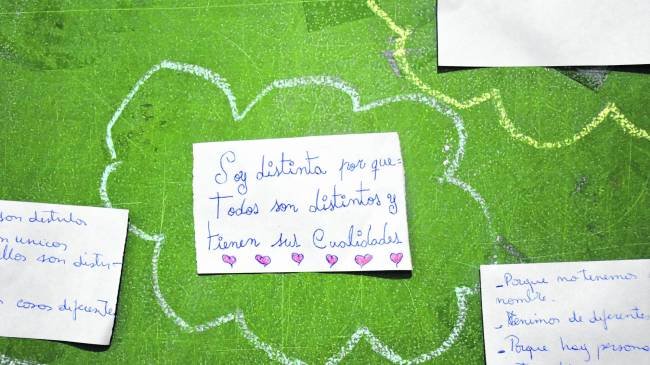 Soy distinta por que=
Todos son distintos y
tienen sus Cualidades
son distintos
unicos
ellos son distin-
cosas diferentes
-Porque no tenemos
nombre.
-Venimos de diferentes
-Porque hay persona